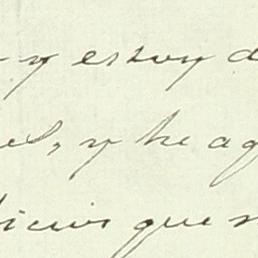 y estoy d
es, y he aq
icios que n